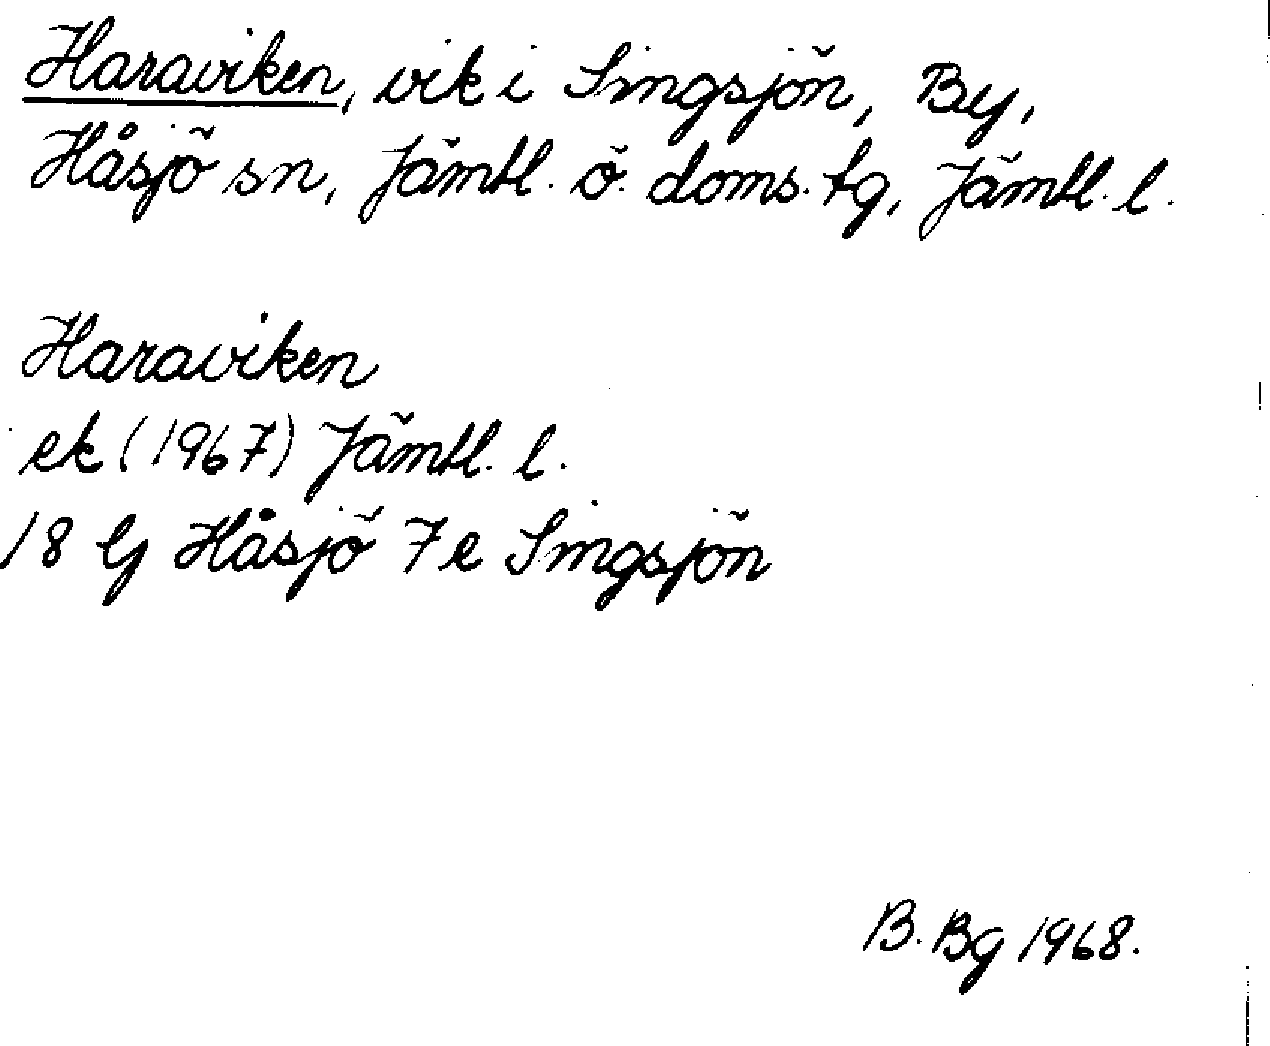 Haraviken, vik i Singsjön, By,
Håsjö sn, Jämtl. ö. doms. tg, Jämtl. l.
Haraviken
ek (1967) Jämtl. l.
18 G Håsjö 7 e Singsjön
B. Bg 1968.